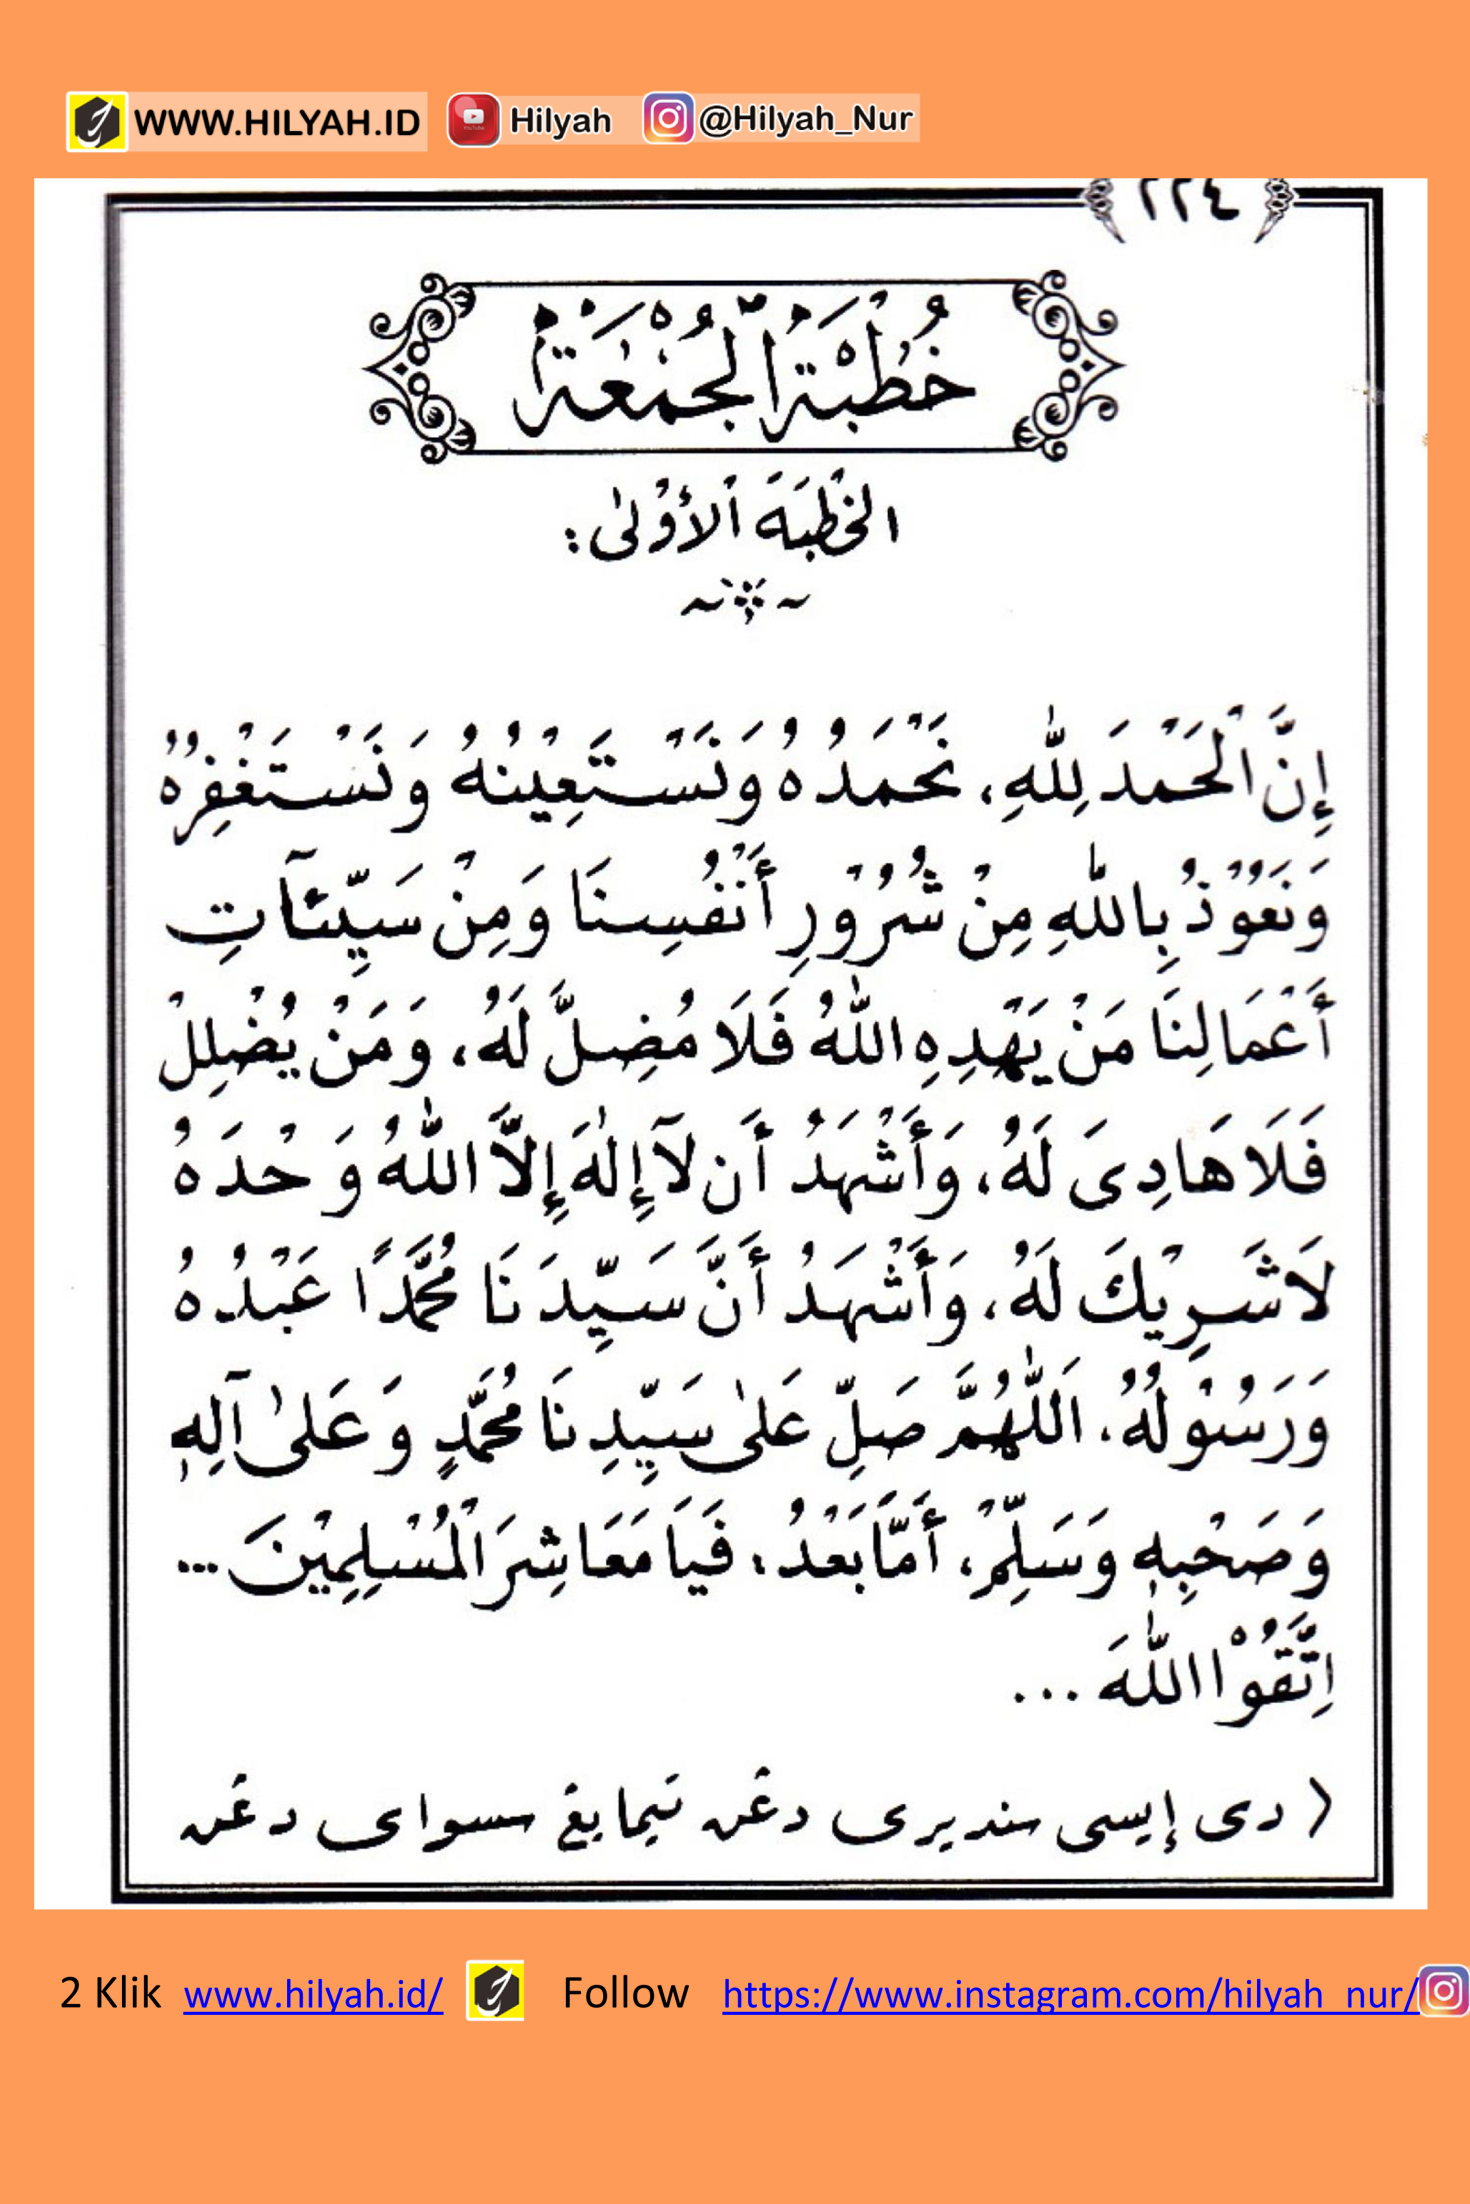 WWW.HILYAH.ID Hilyah @Hilyah_Nur
٢٢٤
خُطْبَةُ الْجُمْعَةِ
الخُطْبَةُ الْأُوْلَى:
إِنَّ الْحَمْدَ لِلّٰهِ، نَحْمَدُهُ وَنَسْتَعِيْنُهُ وَنَسْتَغْفِرُهُ
وَنَعُوْذُ بِاللّٰهِ مِنْ شُرُوْرِ أَنْفُسِنَا وَمِنْ سَيِّئَآتِ
أَعْمَالِنَا مَنْ يَهْدِهِ اللّٰهُ فَلَا مُضِلَّ لَهُ، وَمَنْ يُضْلِلْ
فَلَا هَادِىَ لَهُ، وَأَشْهَدُ أَن لَآ إِلٰهَ إِلَّا اللّٰهُ وَحْدَهُ
لَا شَرِيْكَ لَهُ، وَأَشْهَدُ أَنَّ سَيِّدَنَا مُحَمَّدًا عَبْدُهُ
وَرَسُوْلُهُ، اَللّٰهُمَّ صَلِّ عَلٰى سَيِّدِنَا مُحَمَّدٍ وَعَلٰى آلِهٖ
وَصَحْبِهٖ وَسَلِّمْ، أَمَّا بَعْدُ، فَيَا مَعَاشِرَ الْمُسْلِمِيْنَ ...
اِتَّقُوْا اللّٰهَ ...
( دى إيسى سنديرى دڠن تيمايڠ سسواى دڠن
2 Klik www.hilyah.id/ Follow https://www.instagram.com/hilyah_nur/